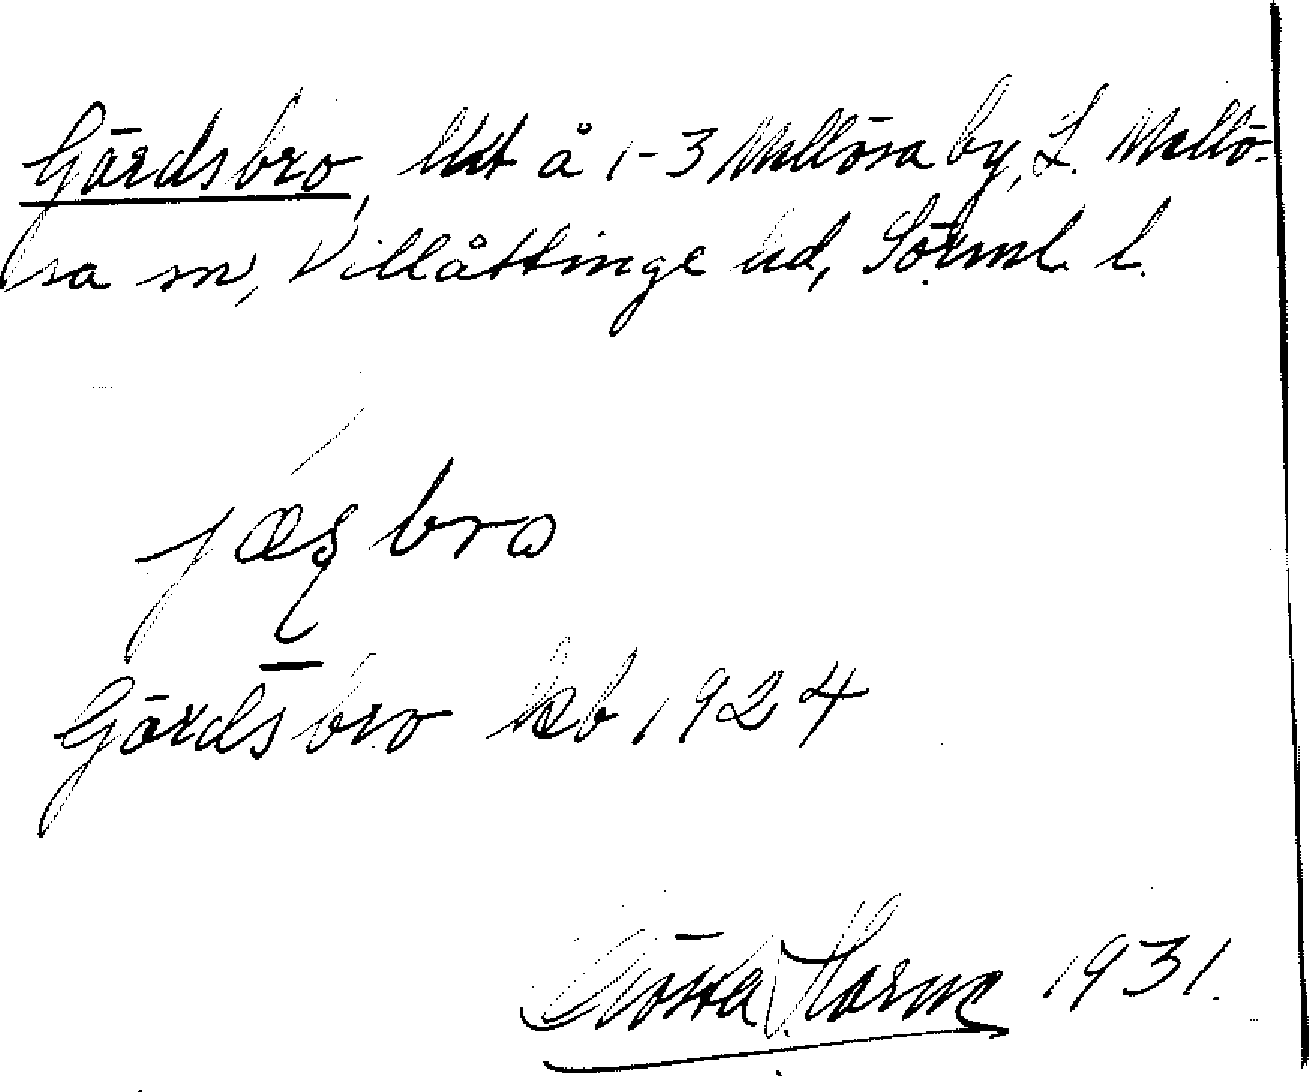 Gärdsbro, lht å 1-3 Mellösa by, L. Mellö-
sa sn, Villåttinge hd, Sörml. l.
jæsbro
Gärdsbro kb 1924
Gösta 1931.